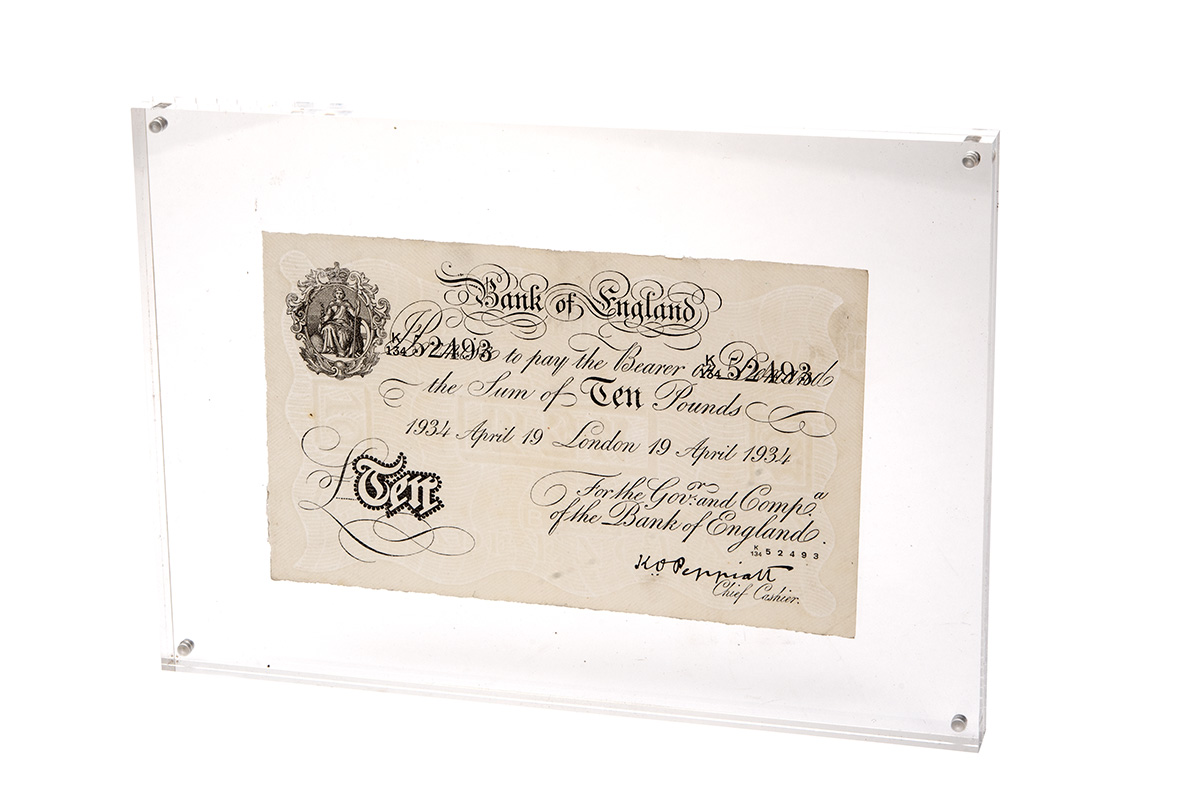 Bank of England
K 134 52493 to pay the Bearer K 134 52493
the Sum of Ten Pounds
1934 April 19 London 19 April 1934
£ Ten
For the Govr. and Compa.
of the Bank of England.
K 134 52493
K O Peppiatt
Chief Cashier.